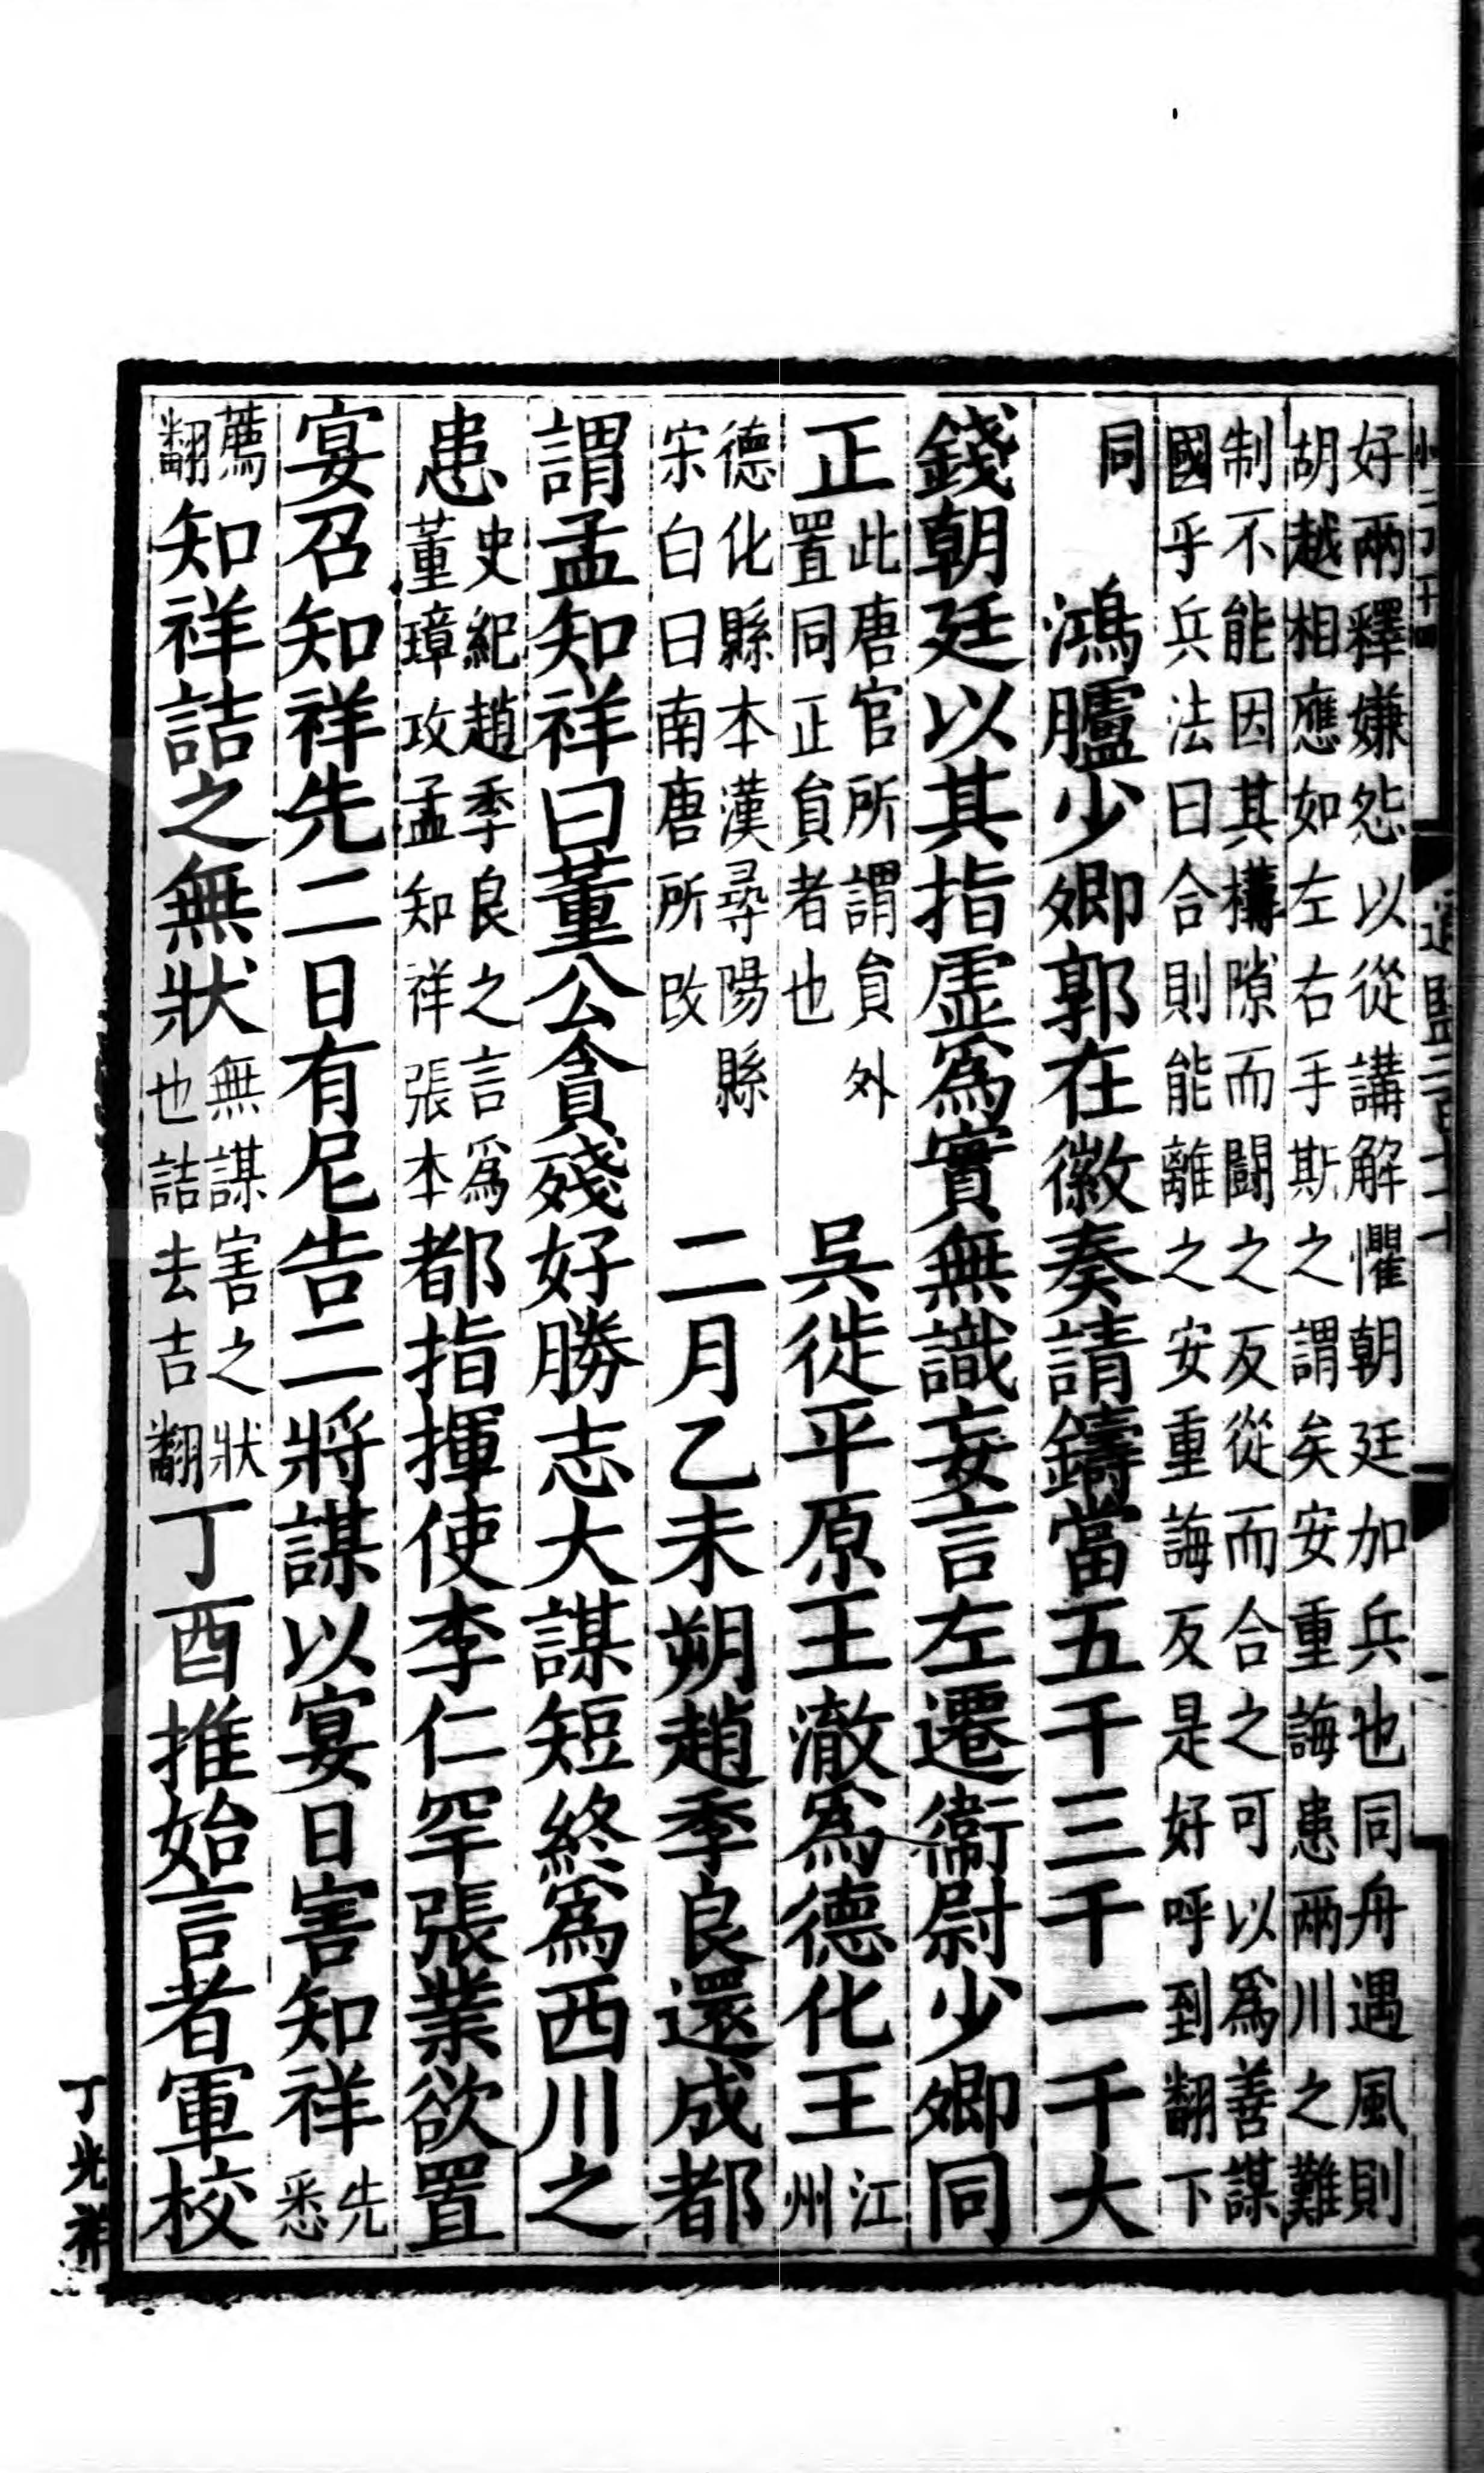 好兩釋嫌怨以從講解懼朝廷加兵也同舟遇風則
胡越相應如左右手斯之謂矣安重誨患兩川之難
制不能因其構隙而鬬之反從而合之可以為善謀
國乎兵法曰合則能離之安重誨反是好呼到翻下
同
鴻臚少卿郭在徽奏請鑄當五千三千一千大
錢朝廷以其指虛為實無識妄言左遷衞尉少卿同
正
此唐官所謂負外
置同正負者也
吳徙平原王澈為德化王
江
州
德化縣本漢尋陽縣
宋白曰南唐所改
二月乙未朔趙季良還成都
謂孟知祥曰董公貪殘好勝志大謀短終為西川之
患
史紀趙季良之言為
董璋攻孟知祥張本
都指揮使李仁罕張業欲置
宴召知祥先二日有尼告二將謀以宴日害知祥
先
悉
薦
翻
知祥詰之無狀
無謀害之狀
也詰去吉翻
丁酉推始言者軍校
丁光祥